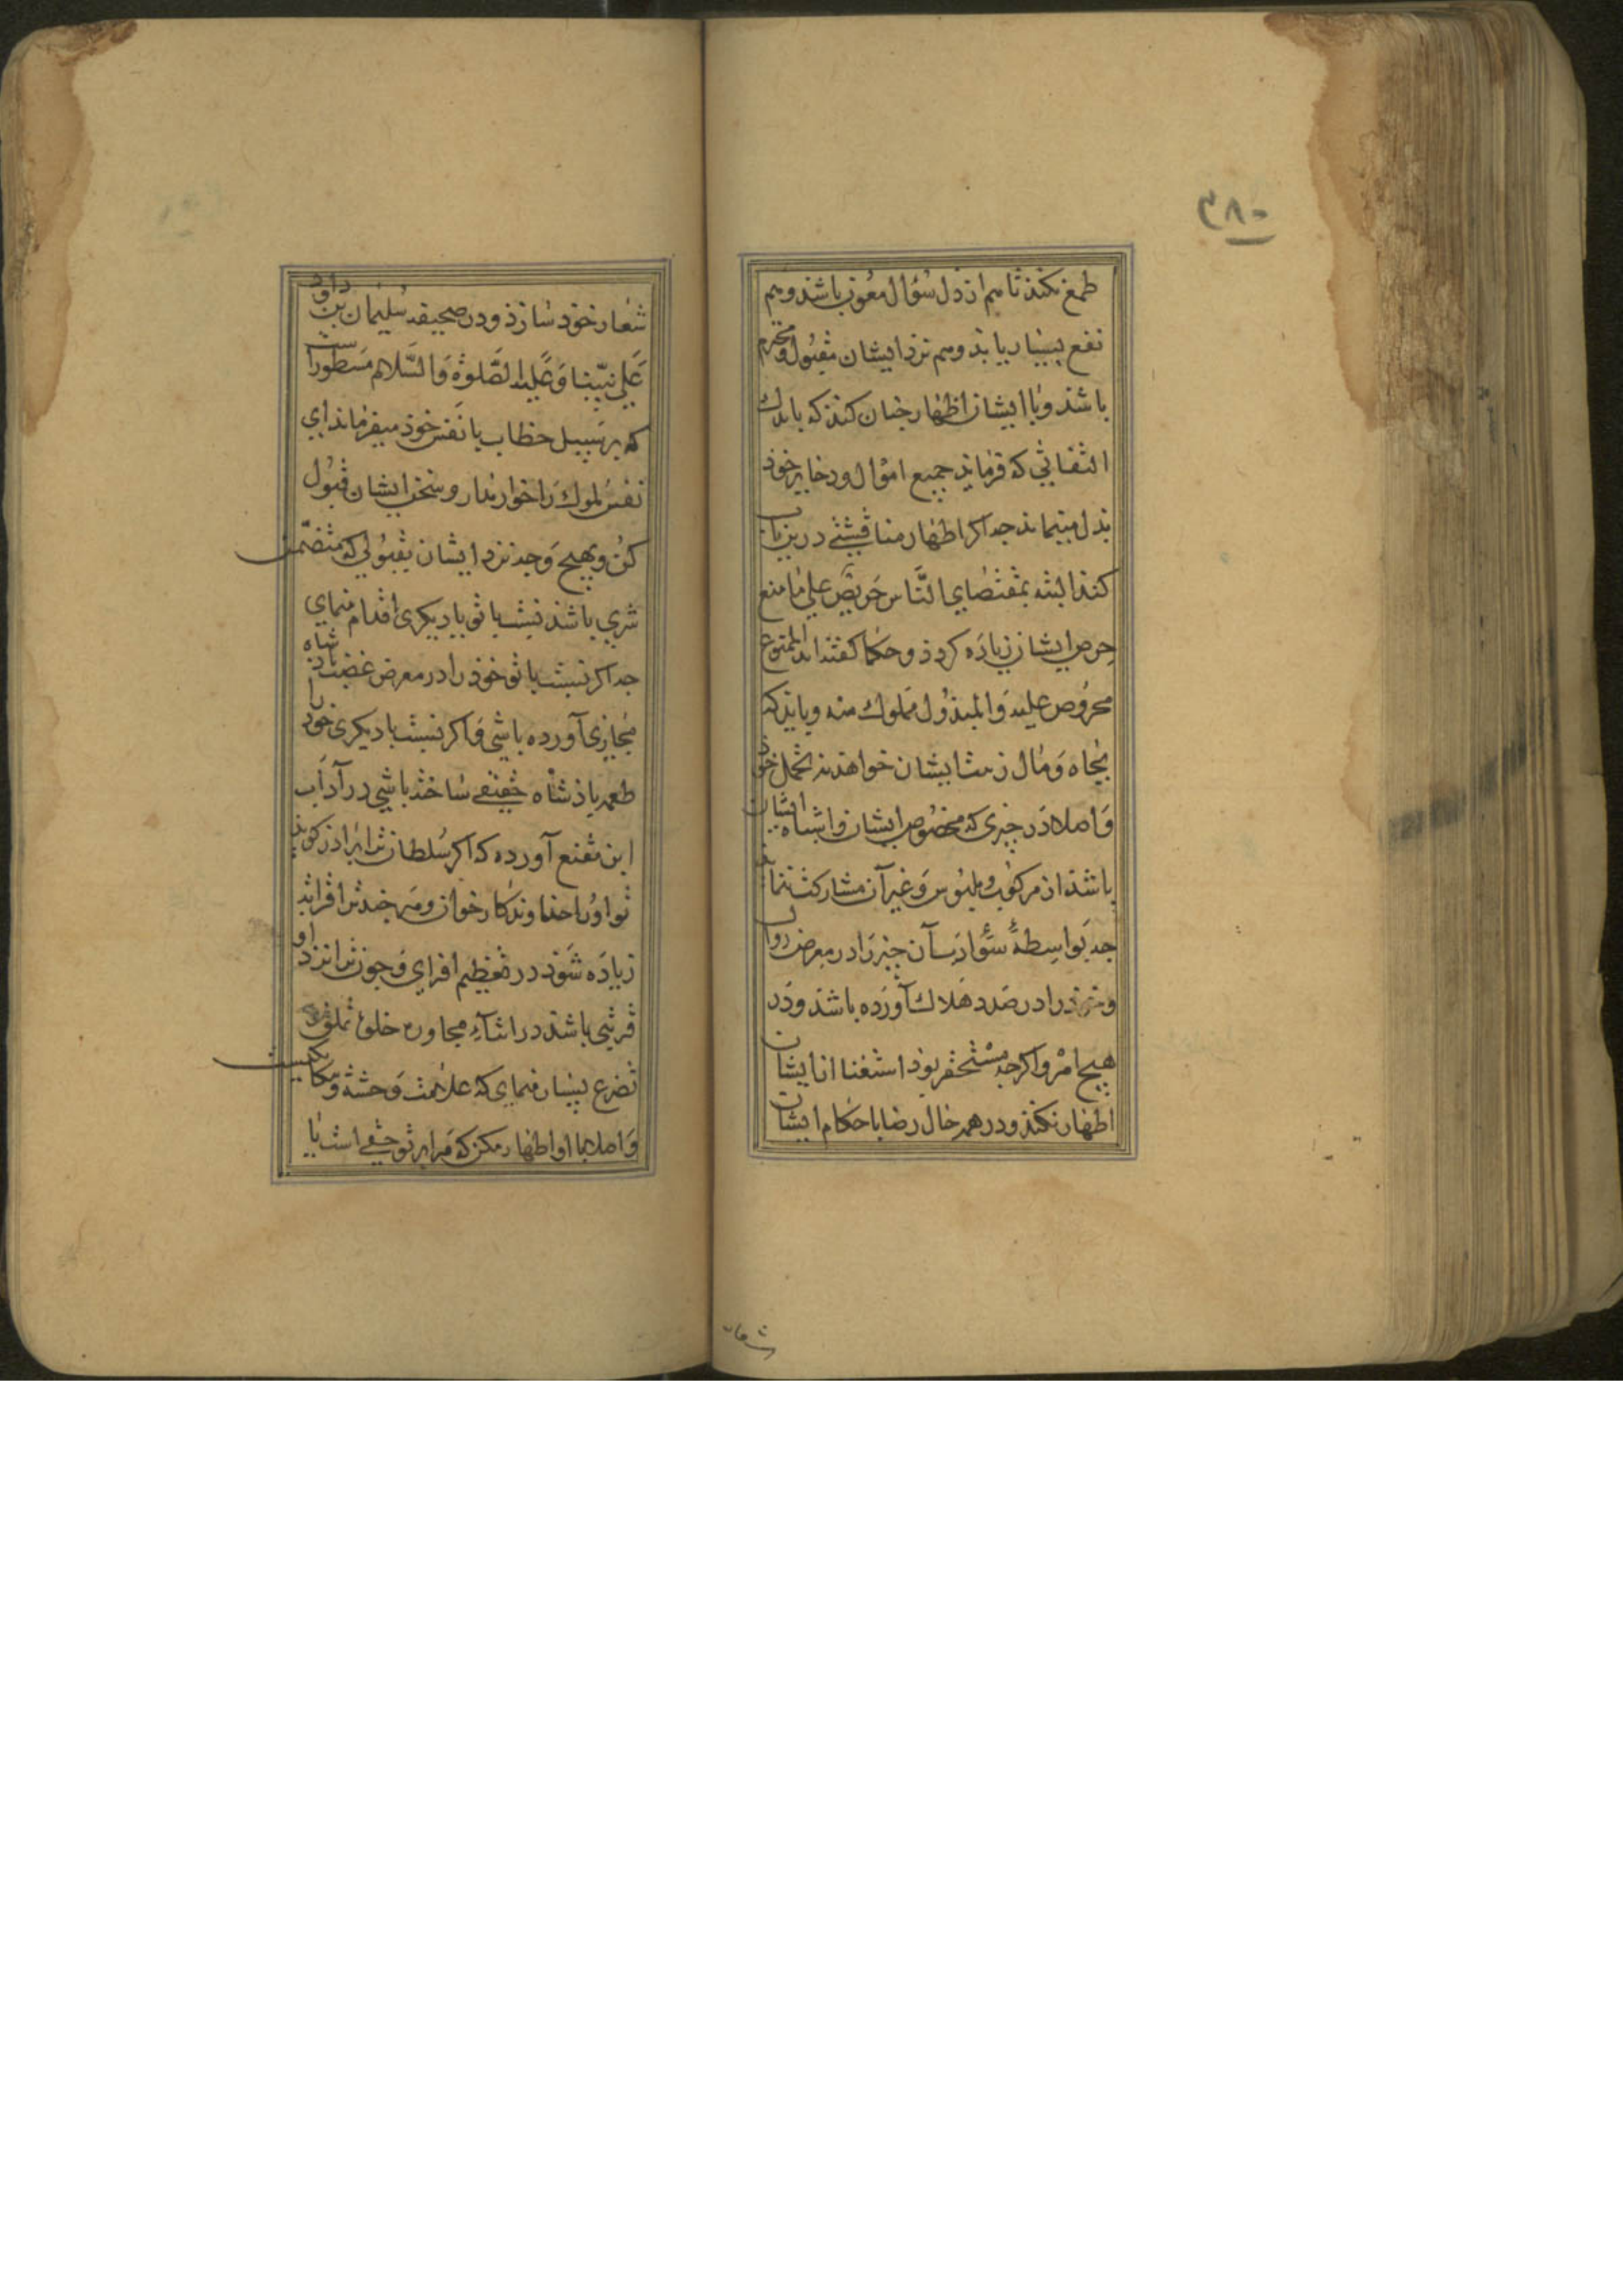 ۳۸۰
طمع نکند تا هم از ذل سؤال مصون باشد و هم
نفع بسیار یابد و هم نزد ایشان مقبول و محترم
باشد و با ایشان اظهار چنان کند که باندک
التفاتی که فرمایند جمیع اموال و ذخایر خود
بذل مینماید چه اگر اظهار مناقشتی درین باب
کند البته بمقتضای النَّاس حَریصٌ علی ما منع
حرص ایشان زیاده کردد و حکما کفته‌اند الممنوع
محروص علیه و المبذول مملوک منه و باید که
بجاه و مال زینت ایشان خواهد نه تجمل خود
و اصلا در چیزی که مخصوص ایشان و اشباه ایشان
باشد از مرکوب و ملبوس و غیر آن مشارکت ننماید
چه بواسطهٔ سوء ادب آن چیز را در معرض زوال
و خود را در صدد هلاک آورده باشد و در
هیچ امر و اکرچه مستحقر بود استغنا از ایشان
اظهار نکند و در همه حال رضا باحکام ایشان
شعار
شعار خود سازد و در صحیفه سلیمان بن داود
عَلی نبیّنا وَ عَلیه الصَّلوة وَ السَّلام مسطورست
که بر سبیل خطاب با نفس خود میفرماید ای
نفس ملوک را خوار مدار و سخن ایشان قبول
کن و بهیچ وجه نزد ایشان بقبولی که متضمن
شری باشد نسبت باتو یا دیکری اقدام منمای
چه اکر نسبت باتو خود را در معرض غضب پادشاه
مجازی آورده باشی و اکر نسبت با دیکری خود را
طعمه پادشاه حقیقی ساخته باشی در آداب
ابن مقنع آورده که اکر سلطان ترا برادر کوید
تو او را خداوندکار خوان و هر چند ترا قرابت
زیاده شود در تعظیم افزای و چون ترا نزد او
قربتی باشد در اثناء محاوره خلق تملق و
تضرع بسیار منمای که علامت وحشت و بیکانکیست
و اصلا با او اظهار مکن که مرا بر تو حقی است یا